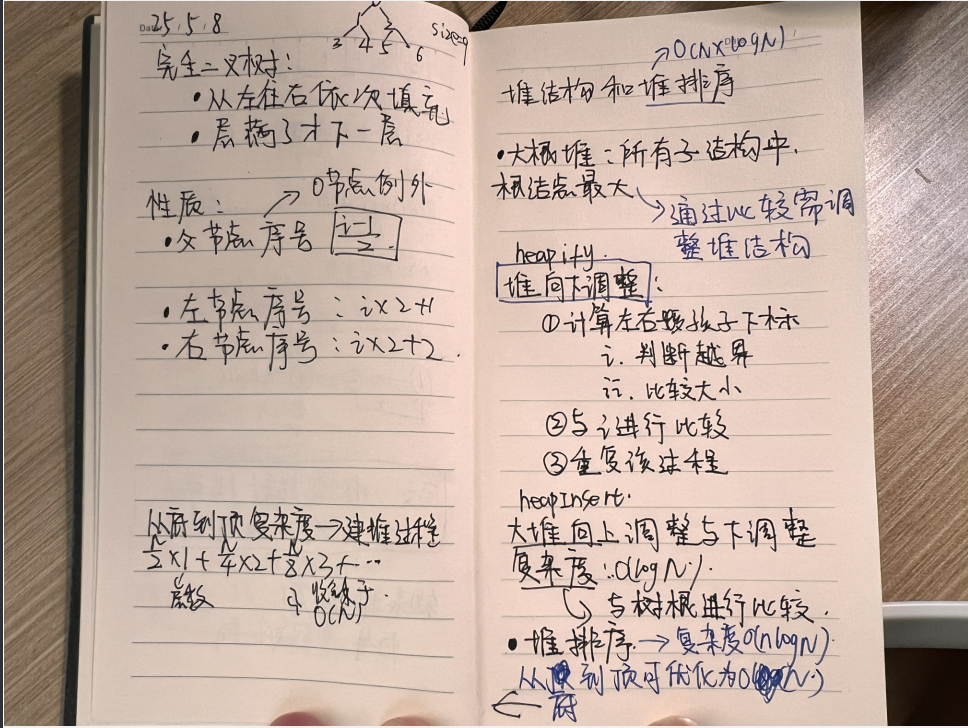 Date 25.5.8
3 4 5 6
size=9
完全二叉树:
•从左往右依次填充
•层满了才下一层
→0节点例外
性质:
•父节点序号 i-1/2
•左节点序号:i×2+1
•右节点序号:i×2+2.
从底到顶复杂度→建堆过程
N/2×1+N/4×2+N/8×3+…
层数
收敛于
O(N)
→O(N×logN)
堆结构和堆排序
•大根堆:所有子结构中.
根结点最大
→通过比较需调
整堆结构
heapify.
堆向下调整:
①计算左右孩子下标
i. 判断越界
ii. 比较大小
②与i进行比较
③重复该过程
heapInsert.
大堆向上调整与下调整
复杂度:O(logN).
→与树根进行比较.
•堆排序→复杂度O(nlogN).
从底到顶可优化为O(N.)